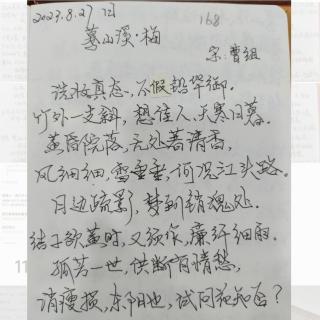 2023.8.27 日
168
蓦山溪·梅
宋·曹组
洗妆真态,不假铅华御。
竹外一支斜,想佳人,天寒日暮。
黄昏院落,无处著清香,
风细细,雪垂垂,何况江头路。
月边疏影,梦到销魂处。
结子欲黄时,又须作,廉纤细雨。
孤芳一世,供断有情愁,
消瘦损,东阳也,试问花知否?
11